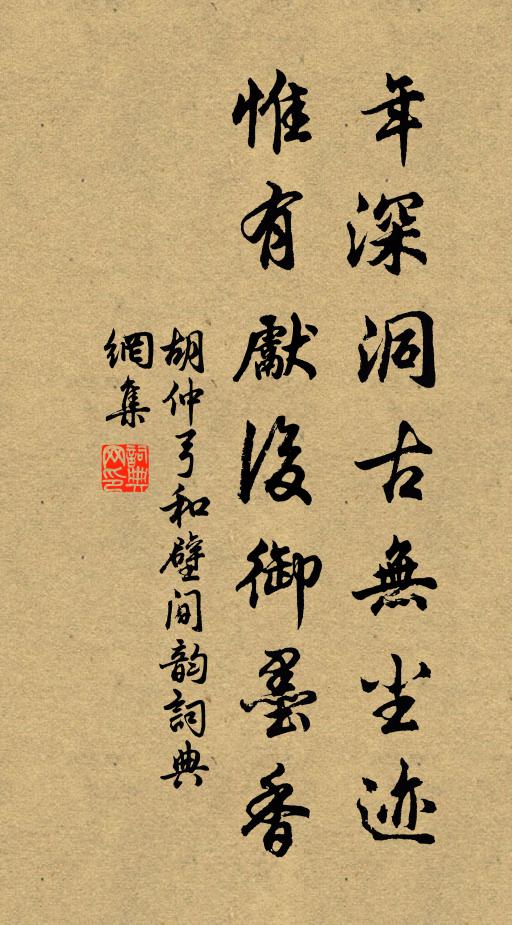 年深洞古無尘迹
惟有獻後御墨香
胡仲弓和壁间韵詞典
網集
詞典網印